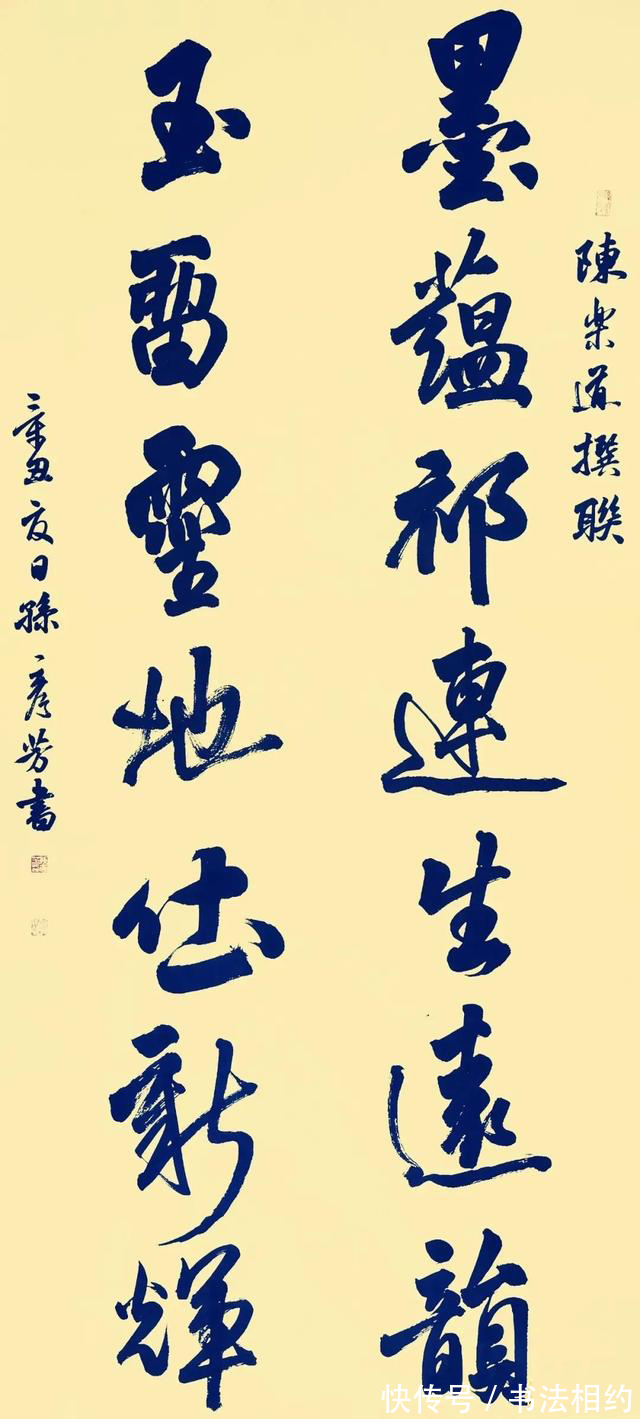 陳樂道撰聯
墨蘊祁連生遠韻
玉留靈地新輝
辛丑夏日孫彥芳書
快传号/书法相约